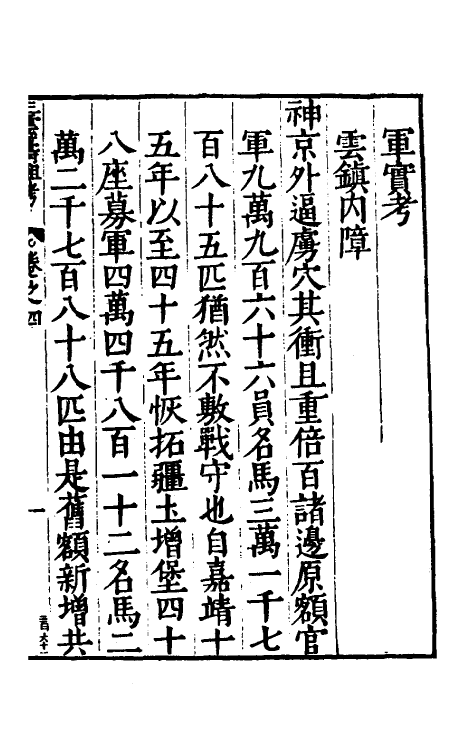 軍實考
雲鎮內障
神京外逼虜穴其衝且重倍百諸邊原額官
軍九萬九百六十六員名馬三萬一千七
百八十五匹猶然不敷戰守也自嘉靖十
五年以至四十五年恢拓疆土增堡四十
八座募軍四萬四千八百一十二名馬二
萬二千七百八十八匹由是舊額新增共
卷之四
一